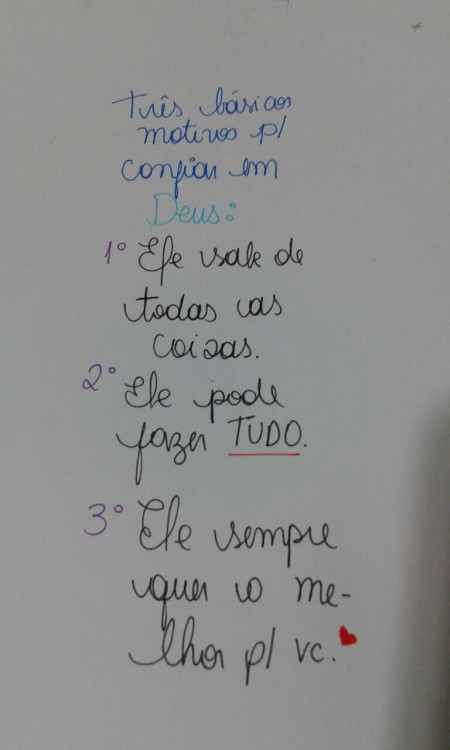 Três básicos
motivos p/
confiar em
Deus:
1° Ele sabe de
todas as
coisas.
2° Ele pode
fazer TUDO.
3° Ele sempre
quer o me-
lhor p/ vc.